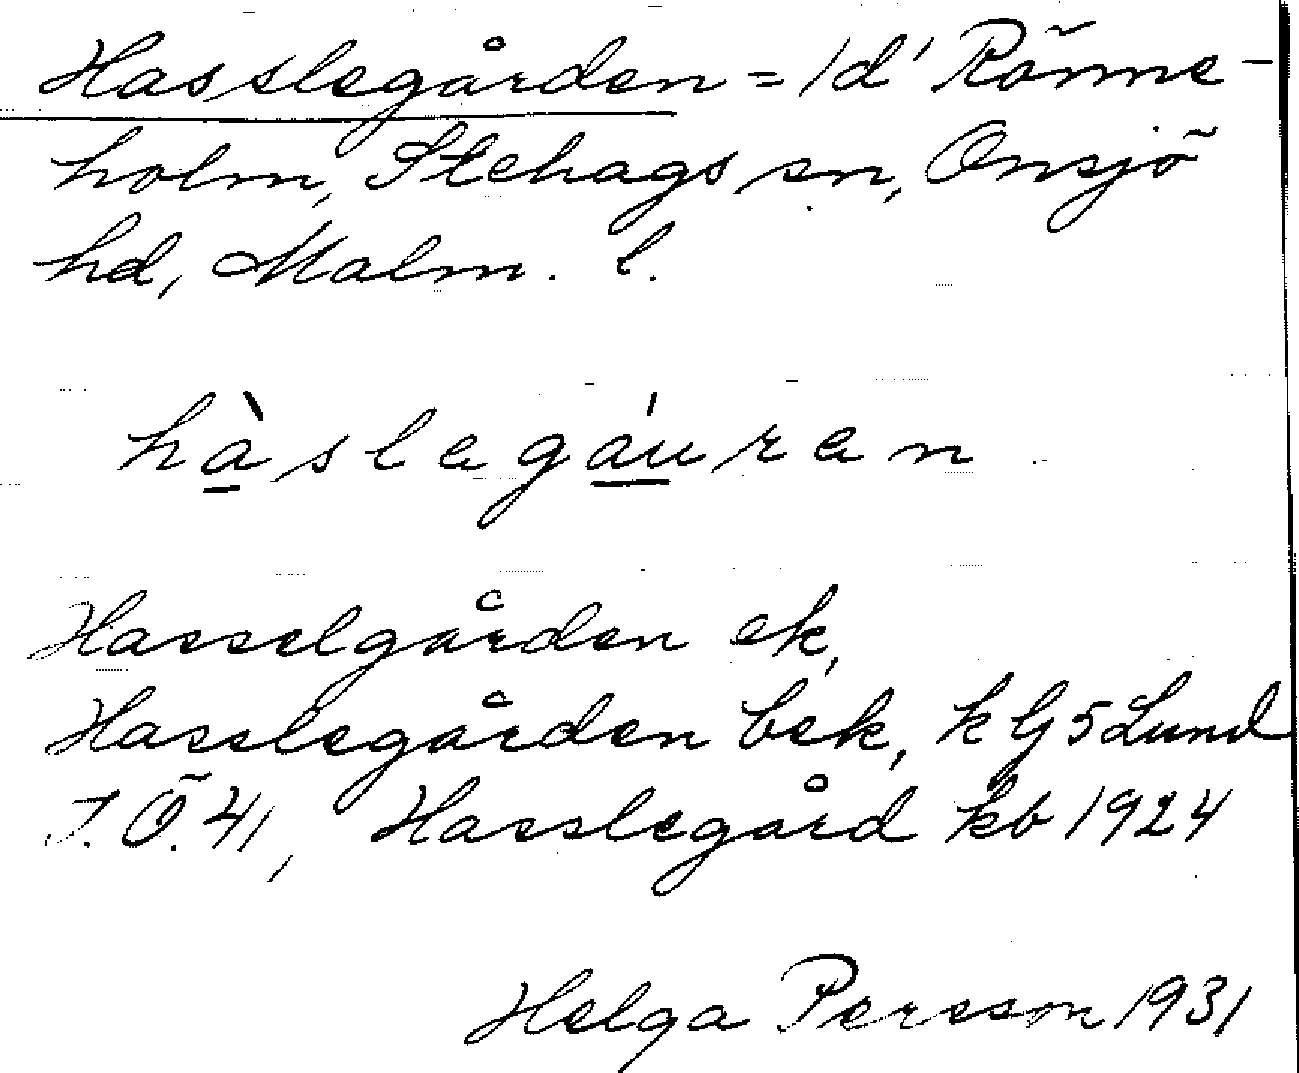 Hasslegården = 1d' Rönne-
holm, Stehags sn, Onsjö
hd, Malm. l.
hàslegáuren
Hasselgården ek,
Hasslegården bek, k G 5 Lund
J. Ö. 41, Hasslegård kb 1924
Helga Persson 1931